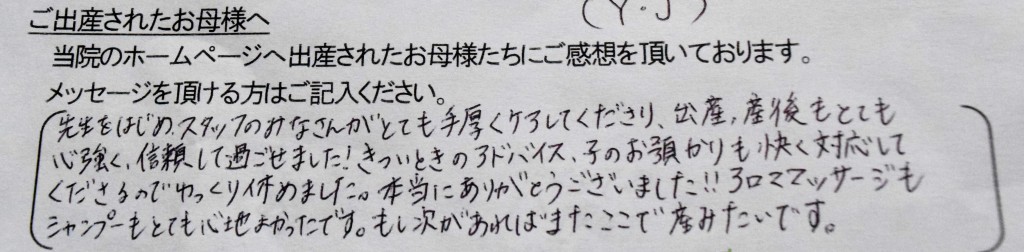 (Y・J)
ご出産されたお母様へ
当院のホームページへ出産されたお母様たちにご感想を頂いております。
メッセージを頂ける方はご記入ください。
先生をはじめ、スタッフのみなさんがとても手厚くケアしてくださり、出産、産後もとても
心強く、信頼して過ごせました!きついときのアドバイス、子のお預かりも快く対応して
くださるのでゆっくり休めました。本当にありがとうございました!!アロママッサージも
シャンプーもとても心地よかったです。もし次があればまたここで産みたいです。